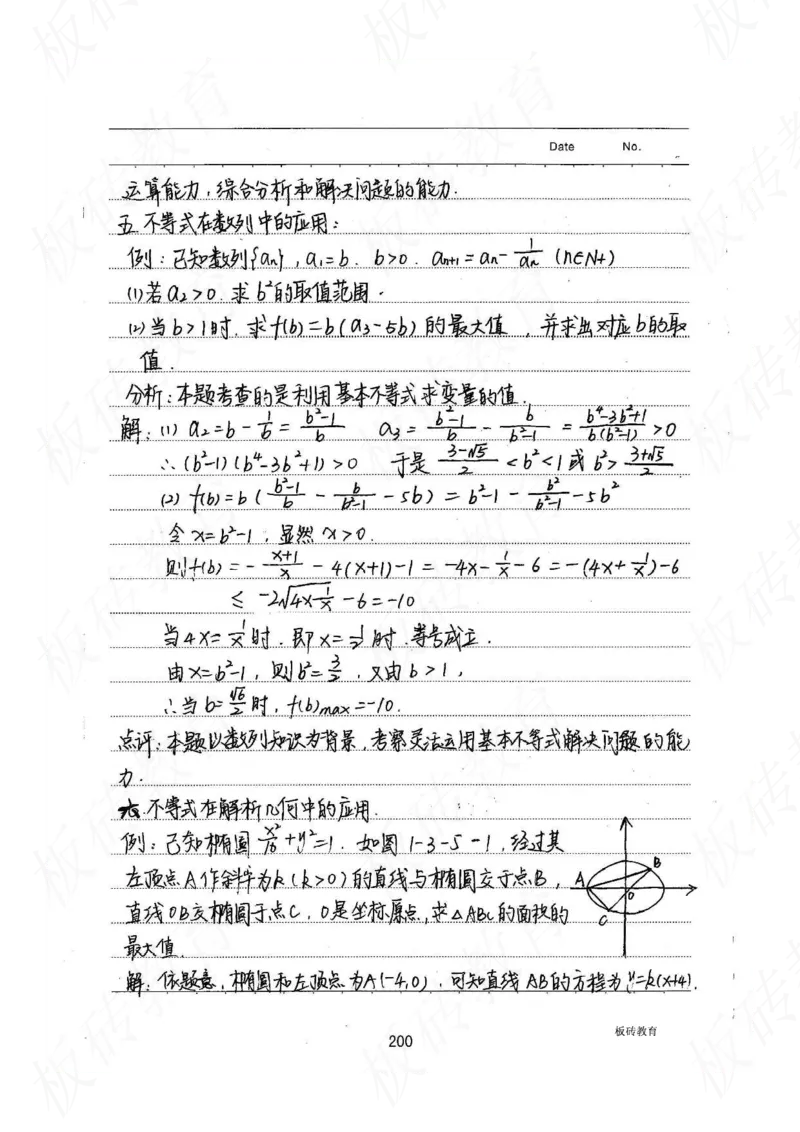 Date No.
运算能力,综合分析和解决问题的能力.
五.不等式在数列中的应用:
例:已知数列{an},a₁=b. b>0. aₙ₊₁=aₙ-1/aₙ (n∈N+)
(1)若a₂>0.求b²的取值范围.
(2)当b>1时.求f(b)=b(a₃-5b)的最大值,并求出对应b的取
值.
分析:本题考查的是利用基本不等式求变量的值.
解:(1) a₂=b-1/b=(b²-1)/b a₃=(b²-1)/b-b/(b²-1)=(b⁴-3b²+1)/(b(b²-1))>0
∴(b²-1)(b⁴-3b²+1)>0 于是 (3-√5)/2<b²<1或b²>(3+√5)/2
(2) f(b)=b((b²-1)/b-b/(b²-1)-5b)=b²-1-b²/(b²-1)-5b²
令x=b²-1,显然x>0.
则f(b)=-(x+1)/x-4(x+1)-1=-4x-1/x-6=-(4x+1/x)-6
≤-2√(4x·1/x)-6=-10
当4x=1/x时.即x=1/2时.等号成立.
由x=b²-1,则b²=3/2,又由b>1,
∴当b=√6/2时,f(b)max=-10.
点评:本题以数列知识为背景,考察灵活运用基本不等式解决问题的能
力.
六.不等式在解析几何中的应用.
例:已知椭圆x²/16+y²=1.如图1-3-5-1,经过其
左顶点A作斜率为k(k>0)的直线与椭圆交于点B,
直线OB交椭圆于点C,O是坐标原点,求△ABC的面积的
最大值.
A B
O
C
解:依题意,椭圆和左顶点为A(-4,0),可知直线AB的方程为y=k(x+4).
200
板砖教育